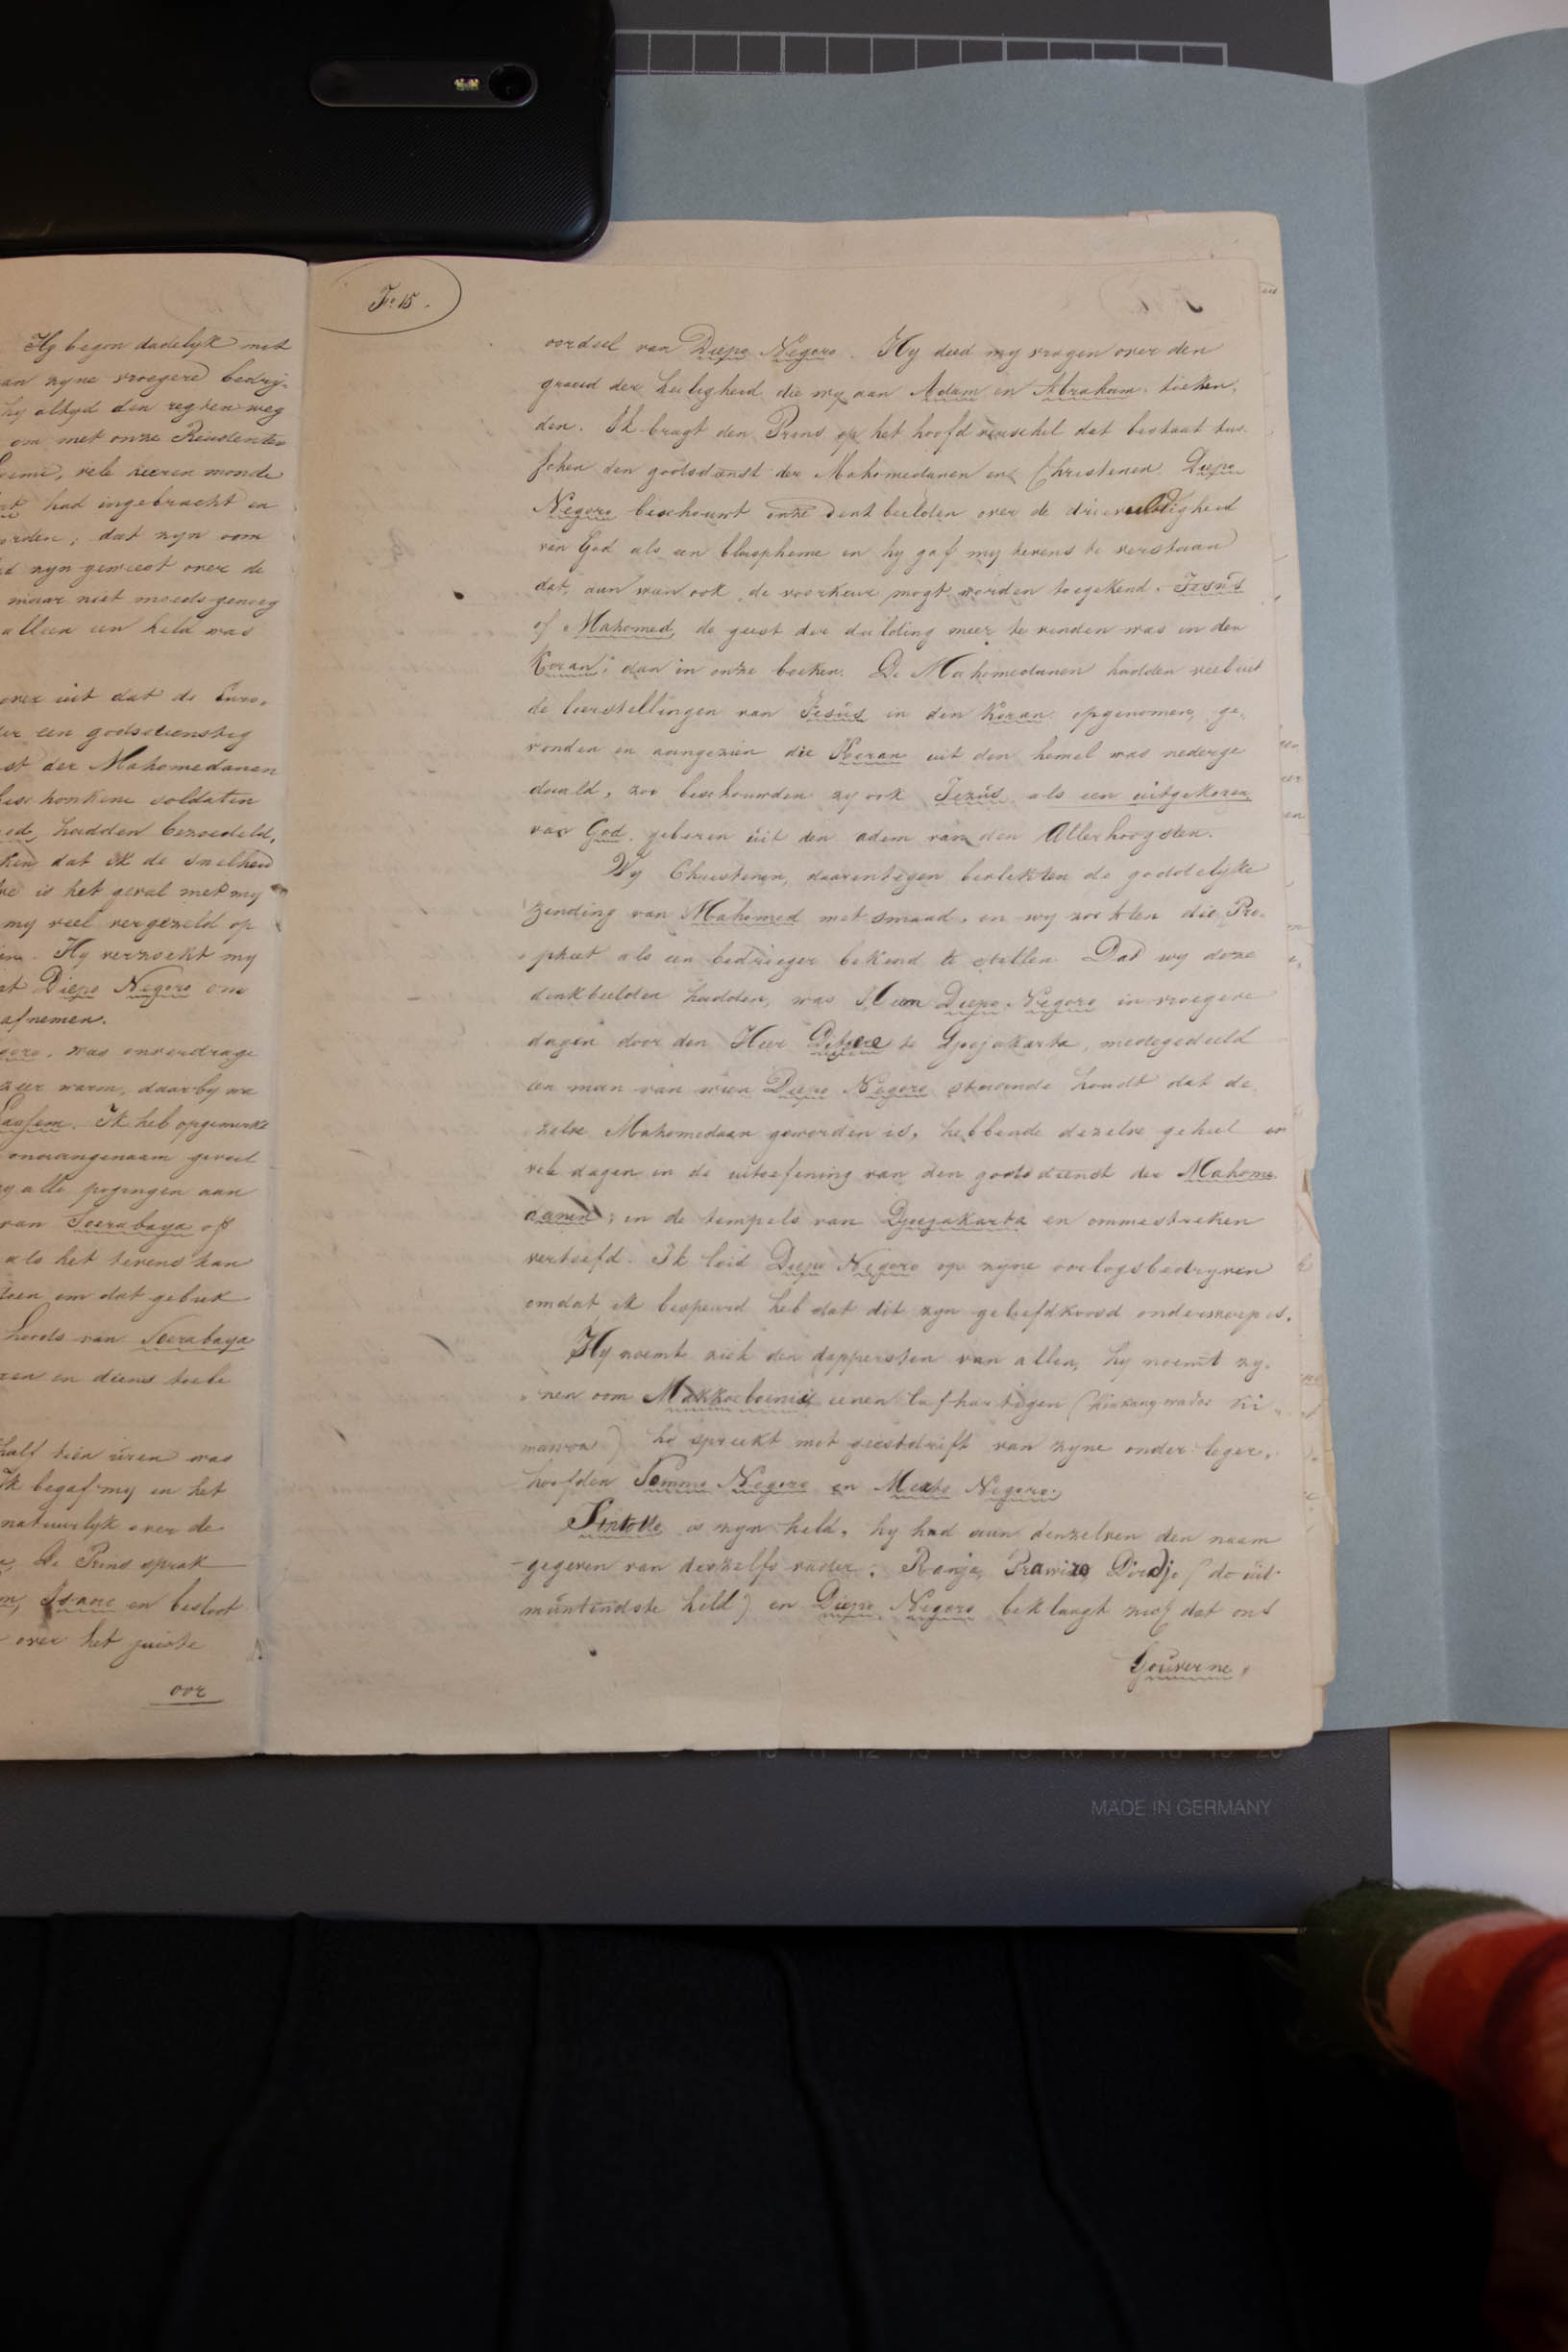 Hy begon dadelyk met
an zyne vroegere bedry-
hy altyd den regten weg
om met onze Residenten
vele heeren monde
had ingebracht en
orden; dat zyn oom
d zyn geweest over de
maar niet moeds genoeg
alleen een held was
over uit dat de Euro-
er een godsdienstig
st der Mahomedanen
beschonkene soldaten
hadden bezoedeld.
ken dat ik de snelheid
is het geval met my
my veel vergezeld op
Hy verzoekt my
at Diepo Negoro om
afnemen.
goro, was onverdrage
zeer warm, daarby wa
Ik heb opgemerkt
onaangenaam gevoel
y alle pogingen aan
van Soerabaya op
als het tevens kan
toen om dat gebrek
hoofds van Soerabaya
zen en diens toebe
half tien uren was
Ik begaf my in het
natuurlyk over de
De Prins sprak
en besloot
over het juiste
oor
F: 15.
oordeel van Diepo Negoro. Hy deed my vragen over den
graad der heiligheid die wy aan Adam en Abraham toeken,
den. Ik bragt den Prins op het hoofd verschil dat bestaat tus-
schen den godsdienst der Mahomedanen en Christenen Diepo
Negoro beschouwt onze denkbeelden over de drievuldigheid
van God als een blaspheme en hy gaf my tevens te verstaan
dat, aan wien ook de voorkeur mogt worden toegekend, Jesús
of Mahomed, de geest der dulding meer te vinden was in den
Koran, dan in onze boeken. De Mahomedanen hadden veel uit
de leerstellingen van Jesús in den Koran opgenomen, ge,
vonden en aangezien die Koran uit den hemel was nederge
daald, zoo beschouwden zy ook Jezús als een uitgekozen
van God, geboren uit den adem van den Allerhoogsten.
Wy Christenen, daarentegen bevlekten de goddelyke
zending van Mahomed met smaad, en wy zochten die Pro-
pheet als een bedrieger bekend te stellen Dat wy deze
denkbeelden hadden, was Hem Diepo Negoro in vroegere
dagen door den Heer Dietree te Djocjakarta, medegedeeld
een man van wien Diepo Negoro staande houdt dat de
zelve Mahomedaan geworden is, hebbende dezelve geheel en
vele dagen in de uitoefening van den godsdienst der Mahome
danen, in de tempels van Djocjakarta en ommestreken
vertoefd. Ik leid Diepo Negoro op zyne oorlogsbedryven
omdat ik bespeurd heb dat dit zyn geliefdkoosd onderwerp is.
Hy noemt zich den dappersten van allen, hy noemt zy-
nen oom Makkoeboemie eenen lafhartigen
hy spreekt met geestdrift van zyne onder leger,
hoofden Sommo Negoro en Merto Negoro.
is zyn held, hy had aan denzelven den naam
gegeven van deszelfs vader: Ranga Prawiro Dirdjo (de uit-
muntendste held) en Diepo Negoro beklaagt zich dat ons
Gouverne,
MADE IN GERMANY